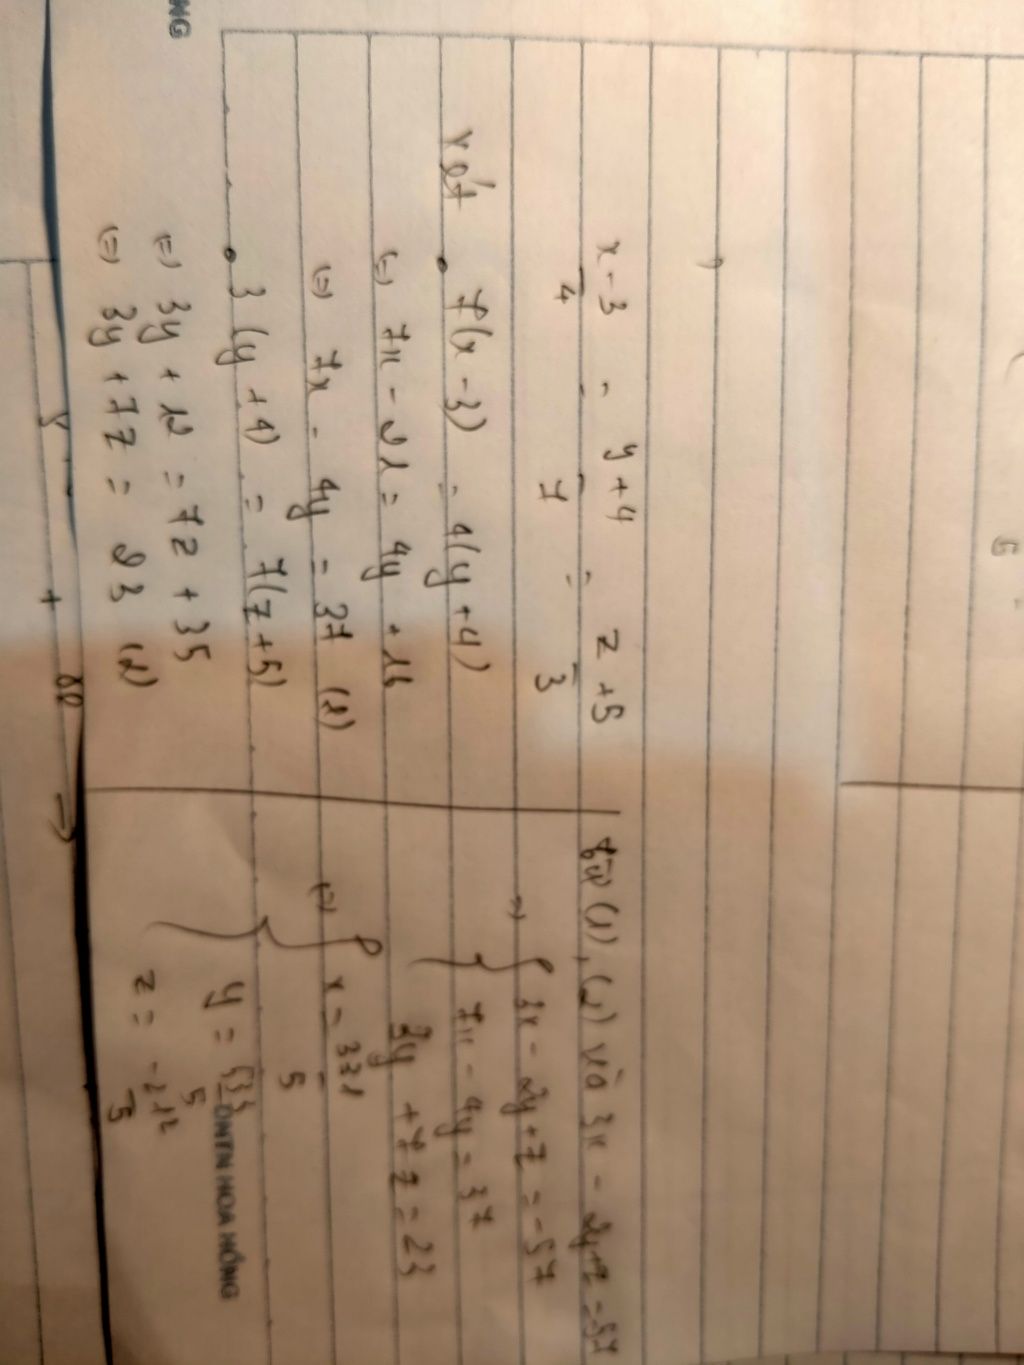 x-3/4 = y+4/7 = z+5/3
Xét • 7(x-3) = 4(y+4)
(=) 7x - 21 = 4y + 16
(=) 7x - 4y = 37 (1)
• 3(y+4) = 7(z+5)
(=) 3y + 12 = 7z + 35
(=) 3y + 7z = 23 (2)
Từ (1), (2) và 3x - 2y + z = -57
=) { 3x - 2y + z = -57
7x - 4y = 37
3y + 7z = 23
(=) { x = 331/5
y = 533/5
z = -212/5
ĐNTN HOA HỒNG